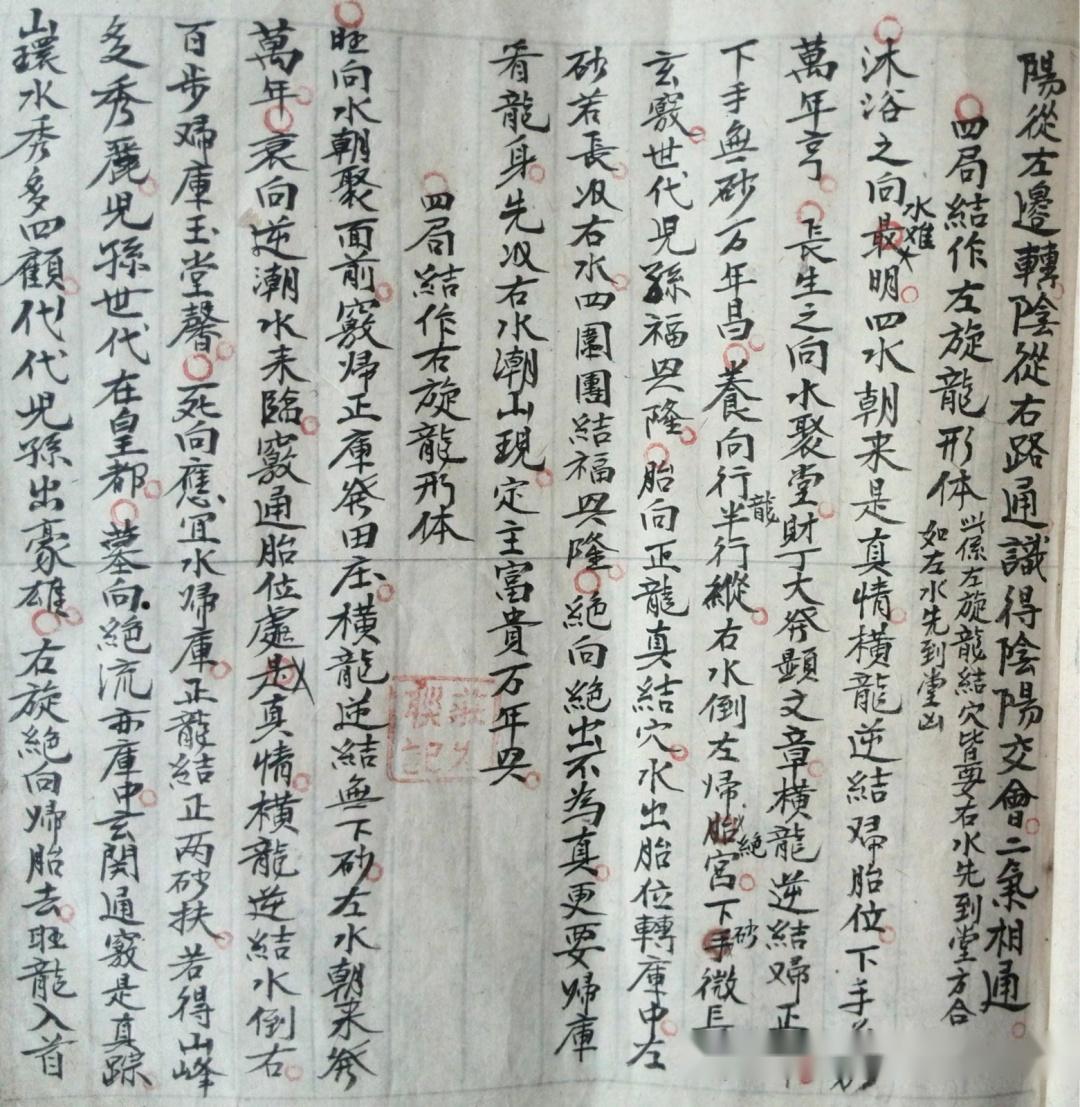 陽從左邊轉陰從右路通識得陰陽交會二氣相通
四局結作左旋龍形体
此係左旋龍結穴皆要右水先到堂方合
如左水先到堂凶
沐浴之向最明四水朝来是真情橫龍逆結歸胎位下手
水难
萬年亨長生之向水聚堂財丁大発顕文章橫龍逆結歸正
下手無砂万年昌養向行半行縱右水倒左歸胎宮下手微長
龍
絕
砂
玄竅世代児孫福興隆胎向正龍真結穴水出胎位轉庫中左
砂若長収右水四圍團結福興隆絕向絕出不為真更要歸庫
看龍身先収右水潮山現定主富貴万年興
四局結作右旋龍形体
旺向水朝聚面前竅歸正庫発田庄橫龍逆結無下砂左水朝来発
萬年衰向逆潮水来臨竅通胎位處是真情橫龍逆結水倒右
百步歸庫玉堂馨死向應宜水歸庫正龍結正两砂扶若得山峰
多秀麗児孫世代在皇都墓向絕流亦庫中玄関通竅是真踪
山環水秀多四顧代代児孫出豪雄右旋絕向歸胎去旺龍入首